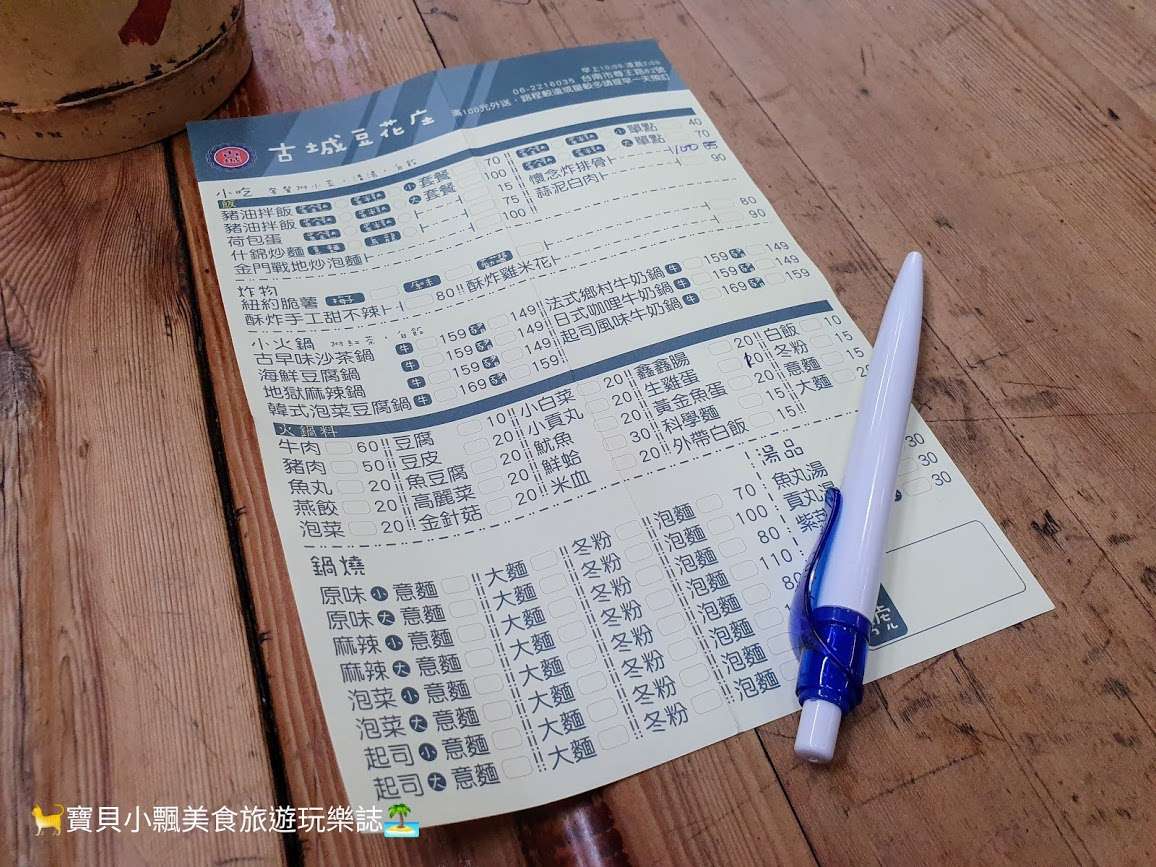 古城豆花庄
早上10:00-凌晨1:00
06-2216035 台南市尊王路82號
滿100元外送
小吃
飯
豬油拌飯 小套餐 70 小單點 40
豬油拌飯 大套餐 100 大單點 70
荷包蛋 15 懷念炸排骨
什錦炒麵 75 蒜泥白肉 90
金門戰地炒泡麵 100
炸物
紐約脆薯 80
酥炸手工甜不辣 80 酥炸雞米花 90
小火鍋
古早味沙茶鍋 牛 159 149 法式鄉村牛奶鍋 牛 159 149
海鮮豆腐鍋 牛 159 149 日式咖哩牛奶鍋 牛 159 149
地獄麻辣鍋 牛 159 149 起司風味牛奶鍋 牛 169 159
韓式泡菜豆腐鍋 牛 169 159
火鍋料
牛肉 60 豆腐 10 小白菜 20 鑫鑫腸 20 白飯 10
豬肉 50 豆皮 20 小貢丸 20 生雞蛋 冬粉 15
魚丸 20 魚豆腐 20 魷魚 20 黃金魚蛋 20 意麵 15
燕餃 20 高麗菜 20 鮮蛤 30 科學麵 15 大麵
泡菜 20 金針菇 20 米血 20 外帶白飯 15
鍋燒
原味 小 意麵 大麵 冬粉 泡麵 70
原味 大 意麵 大麵 冬粉 泡麵 100
麻辣 小 意麵 大麵 冬粉 泡麵 80
麻辣 大 意麵 大麵 冬粉 泡麵 110
泡菜 小 意麵 大麵 冬粉 泡麵
泡菜 大 意麵 大麵 冬粉 泡麵
起司 小 意麵 大麵 冬粉 泡麵
起司 大 意麵 大麵 冬粉 泡麵
湯品
魚丸湯 30
貢丸湯 30
紫菜 30
寶貝小飄美食旅遊玩樂誌